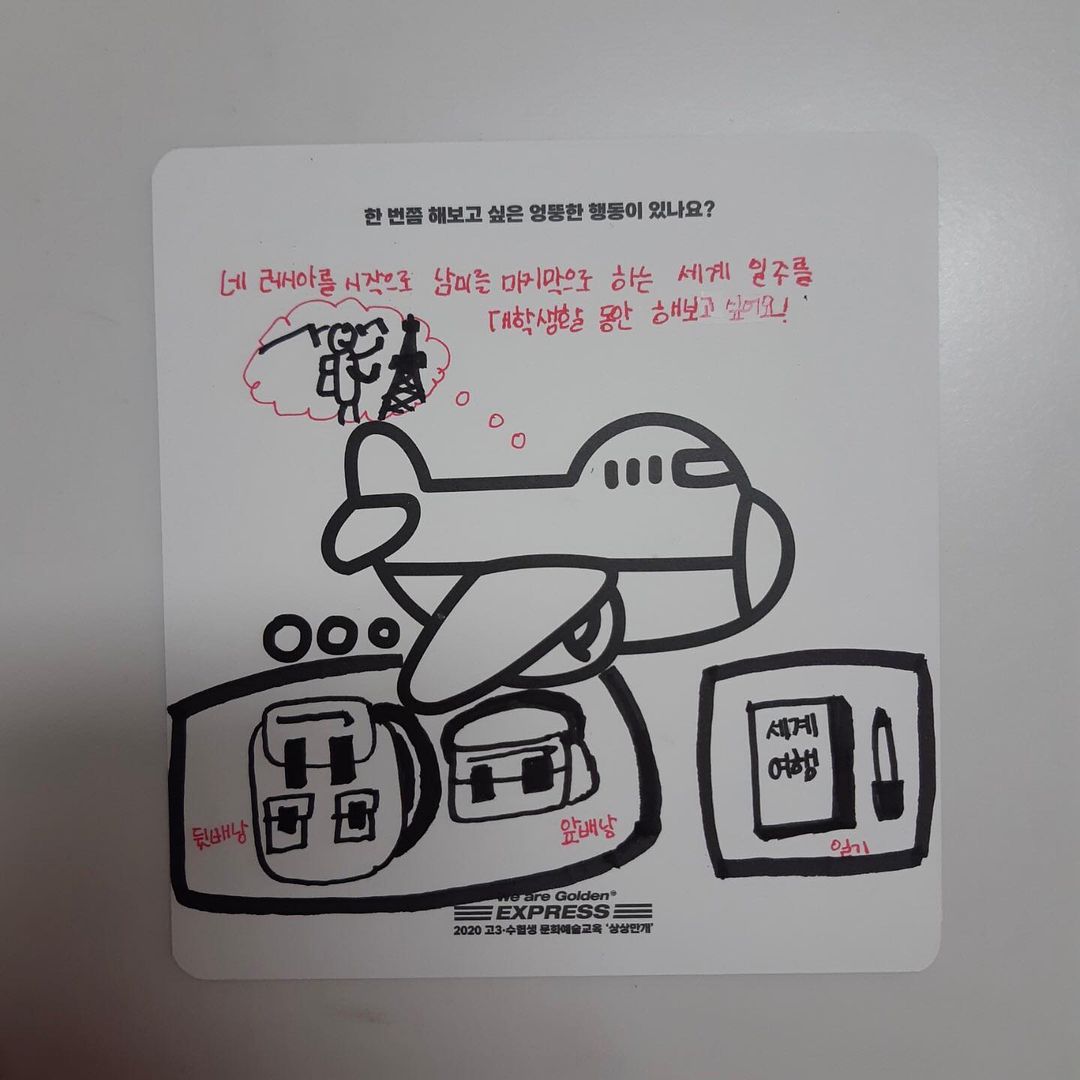 한 번쯤 해보고 싶은 엉뚱한 행동이 있나요?
네 러시아를 시작으로 남미를 마지막으로 하는 세계 일주를
대학생활 동안 해보고 싶어요!
세계
여행
뒷배낭
앞배낭
일기
We are Golden®
EXPRESS
2020 고3·수험생 문화예술교육 '상상만개'